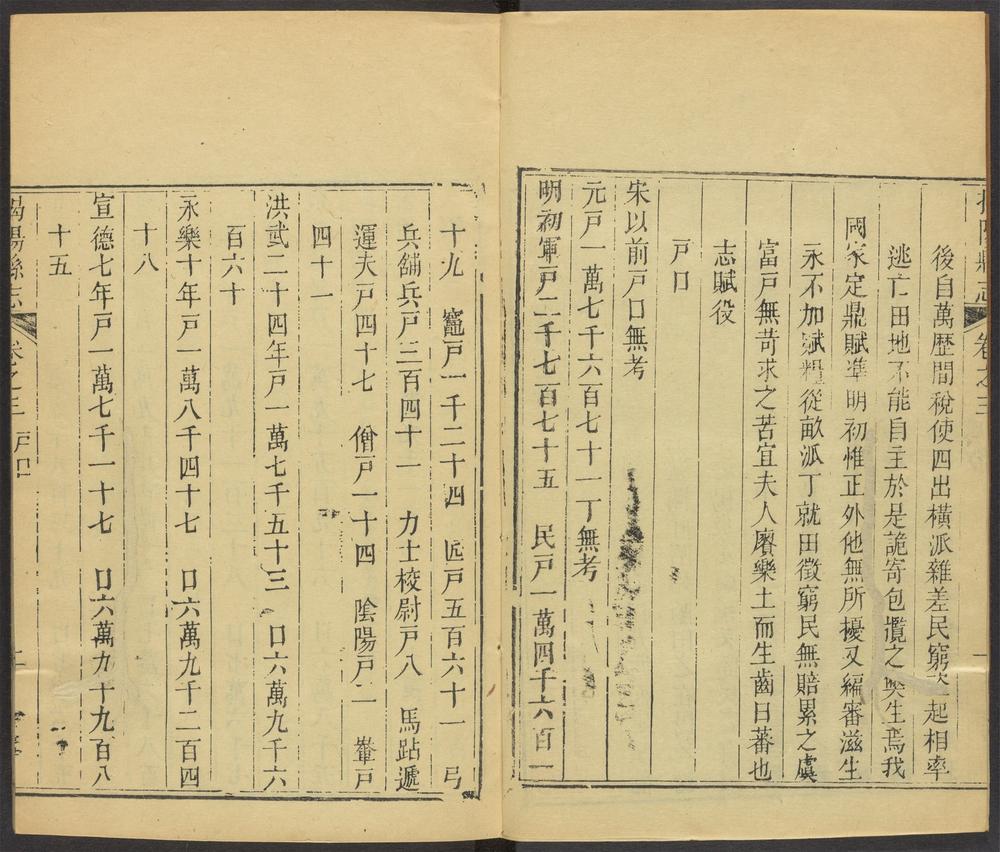 揭陽縣志 卷之三 一
後自萬歷間稅使四出橫派雜差民窮盜起相率
逃亡田地不能自主於是詭寄包攬之獘生焉我
國家定鼎賦準明初惟正外他無所擾又編審滋生
永不加賦糧從畝派丁就田徵窮民無賠累之虞
富戸無苛求之苦宜夫人賡樂土而生齒日蕃也
志賦役
戸口
宋以前戸口無考
元戸一萬七千六百七十一丁無考
明初軍戸二千七百七十五 民戸一萬四千六百一
十九 竈戸一千二十四 匠戸五百六十一 弓
兵舖兵戸三百四十一 力士校尉戸八 馬跕遞
運夫戸四十七 僧戸一十四 陰陽戸二 輋戸
四十一
洪武二十四年戸一萬七千五十三 口六萬九千六
百六十
永樂十年戸一萬八千四十七 口六萬九千二百四
十八
宣德七年戸一萬七千一十七 口六萬九十九百八
十五
揭陽縣志 卷之三 戸口